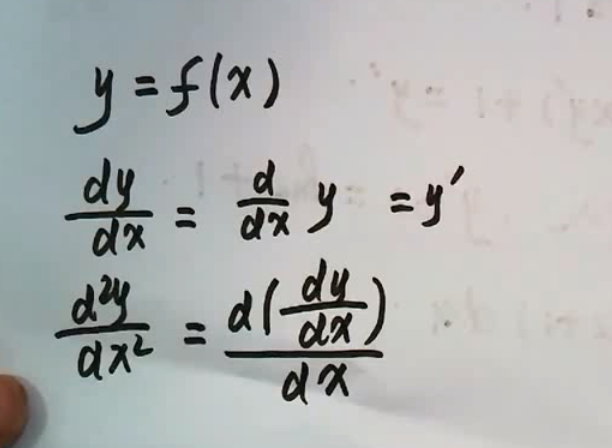 y = f(x)
dy/dx = d/dx y = y′
d²y/dx² = d(dy/dx)/dx